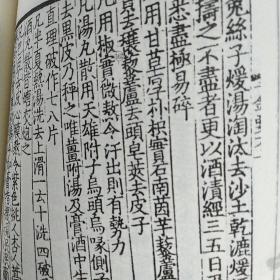 菟絲子煖湯淘汰去沙土乾漉煖
漬之不盡者更以酒漬經三五日
悉盡極易碎
凡用甘草厚朴枳實石南茵芋藜蘆
實去穰藜蘆去頭皂莢去皮子
凡用椒實微熬令汗出則有勢力
凡湯丸散用天雄附子烏頭烏喙側子
去黑皮乃秤之唯薑附湯及膏酒中生
直理破作七八片
凡半夏熱湯洗去上滑一云十洗四破